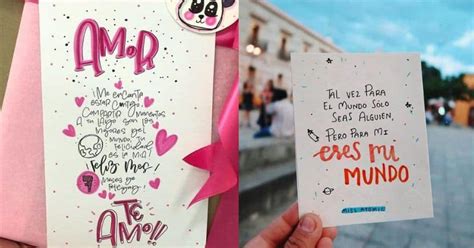 AMOR
¡Me encanta
estar contigo,
compartir momentos
a tu lado son los
mejores del
mundo,
felicidad
es la mía!
¡Feliz Mes!
meses de
TE
AMO!!
TAL VEZ PARA
EL MUNDO SÓLO
SEAS ALGUIEN,
PERO PARA MI
eres mi
MUNDO
MISS ATOMIC